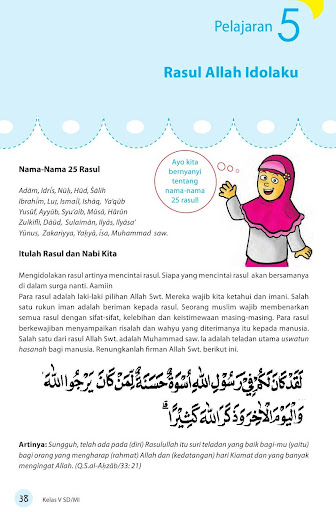 Pelajaran 5
Rasul Allah Idolaku
Ayo kita
bernyanyi
tentang
nama-nama
25 rasul!
Nama-Nama 25 Rasul
Adām, Idrīs, Nūḥ, Hūd, Ṣāliḥ
Ibrahīm, Luṭ, Ismaīl, Isḥāq, Ya'qūb
Yusūf, Ayyūb, Syu'aib, Mūsā, Hārūn
Zulkifli, Dāūd, Sulaimān, Ilyās, Ilyāsa'
Yūnus, Zakariyya, Yaḥyā, Īsa, Muhammad saw.
Itulah Rasul dan Nabi Kita
Mengidolakan rasul artinya mencintai rasul. Siapa yang mencintai rasul akan bersamanya
di dalam surga nanti. Aamiin
Para rasul adalah laki-laki pilihan Allah Swt. Mereka wajib kita ketahui dan imani. Salah
satu rukun iman adalah beriman kepada rasul. Seorang muslim wajib membenarkan
semua rasul dengan sifat-sifat, kelebihan dan keistimewaan masing-masing. Para rasul
berkewajiban menyampaikan risalah dan wahyu yang diterimanya itu kepada manusia.
Salah satu dari rasul Allah Swt. adalah Muhammad saw. Ia adalah teladan utama uswatun
hasanah bagi manusia. Renungkanlah firman Allah Swt. berikut ini.
لَقَدْ كَانَ لَكُمْ فِيْ رَسُوْلِ اللّٰهِ اُسْوَةٌ حَسَنَةٌ لِّمَنْ كَانَ يَرْجُوا اللّٰهَ
وَالْيَوْمَ الْاٰخِرَ وَذَكَرَ اللّٰهَ كَثِيْرًاۗ
Artinya: Sungguh, telah ada pada (diri) Rasulullah itu suri teladan yang baik bagi-mu (yaitu)
bagi orang yang mengharap (rahmat) Allah dan (kedatangan) hari Kiamat dan yang banyak
mengingat Allah. (Q.S.al-Aḥzāb/33: 21)
38 Kelas V SD/MI